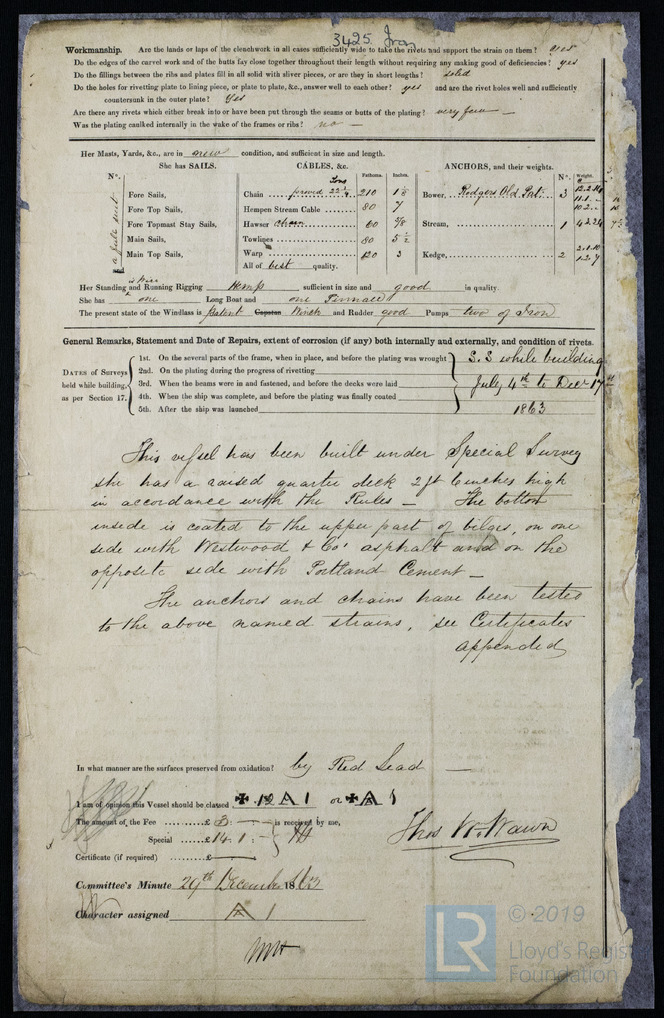 3425 Iron
Workmanship. Are the lands or laps of the clenchwork in all cases sufficiently wide to take the rivets and support the strain on them? yes
Do the edges of the carvel work and of the butts fay close together throughout their length without requiring any making good of deficiencies? yes
Do the fillings between the ribs and plates fill in all solid with sliver pieces, or are they in short lengths? solid
Do the holes for rivetting plate to lining piece, or plate to plate, &c., answer well to each other? yes and are the rivet holes well and sufficiently
countersunk in the outer plate? Yes
Are there any rivets which either break into or have been put through the seams or butts of the plating? very few —
Was the plating caulked internally in the wake of the frames or ribs? no —
Her Masts, Yards, &c., are in new condition, and sufficient in size and length.
She has SAILS. CABLES, &c. ANCHORS, and their weights.
N°. Fathoms. Inches. N°. Weight.
a full suit
Fore Sails, Chain proved Tons 210 Bower, Rodgers Old Pat. 3
Fore Top Sails, Hempen Stream Cable 80 7
Fore Topmast Stay Sails, Hawser chain 60 7/8 Stream, 1
Main Sails, Towlines 80 5 1/2
Main Top Sails, Warp 120 3 Kedge, 2
All of best quality.
Her Standing is Wire and Running Rigging Hemp sufficient in size and good in quality.
She has one Long Boat and one Pinnace
The present state of the Windlass is patent Capstan Winch and Rudder good Pumps two of Iron
General Remarks, Statement and Date of Repairs, extent of corrosion (if any) both internally and externally, and condition of rivets.
DATES of Surveys held while building, as per Section 17.
1st. On the several parts of the frame, when in place, and before the plating was wrought
2nd. On the plating during the progress of rivetting
3rd. When the beams were in and fastened, and before the decks were laid
4th. When the ship was complete, and before the plating was finally coated
5th. After the ship was launched
S. S while building
July 4th to Decr 17th
1863
This vessel has been built under Special Survey
she has a raised quarter deck 2ft 6 inches high
in accordance with the Rules — The bottom
inside is coated to the upper part of bilges, on one
side with Westwood & Co' asphalt and on the
opposite side with Portland Cement —
The anchors and chains have been tested
to the above named strains, see Certificates
appended
In what manner are the surfaces preserved from oxidation? by Red Lead —
I am of opinion this Vessel should be classed ✠ 12 A 1 or ✠ A 1
The amount of the Fee £ 3 : - : - is received by me,
Special £ 14 : 1 : -
Thos W. Wawn
Certificate (if required) £
Committee's Minute 29th December 1863
Character assigned A 1
© 2019
LR
Lloyd's Regis
Foundation